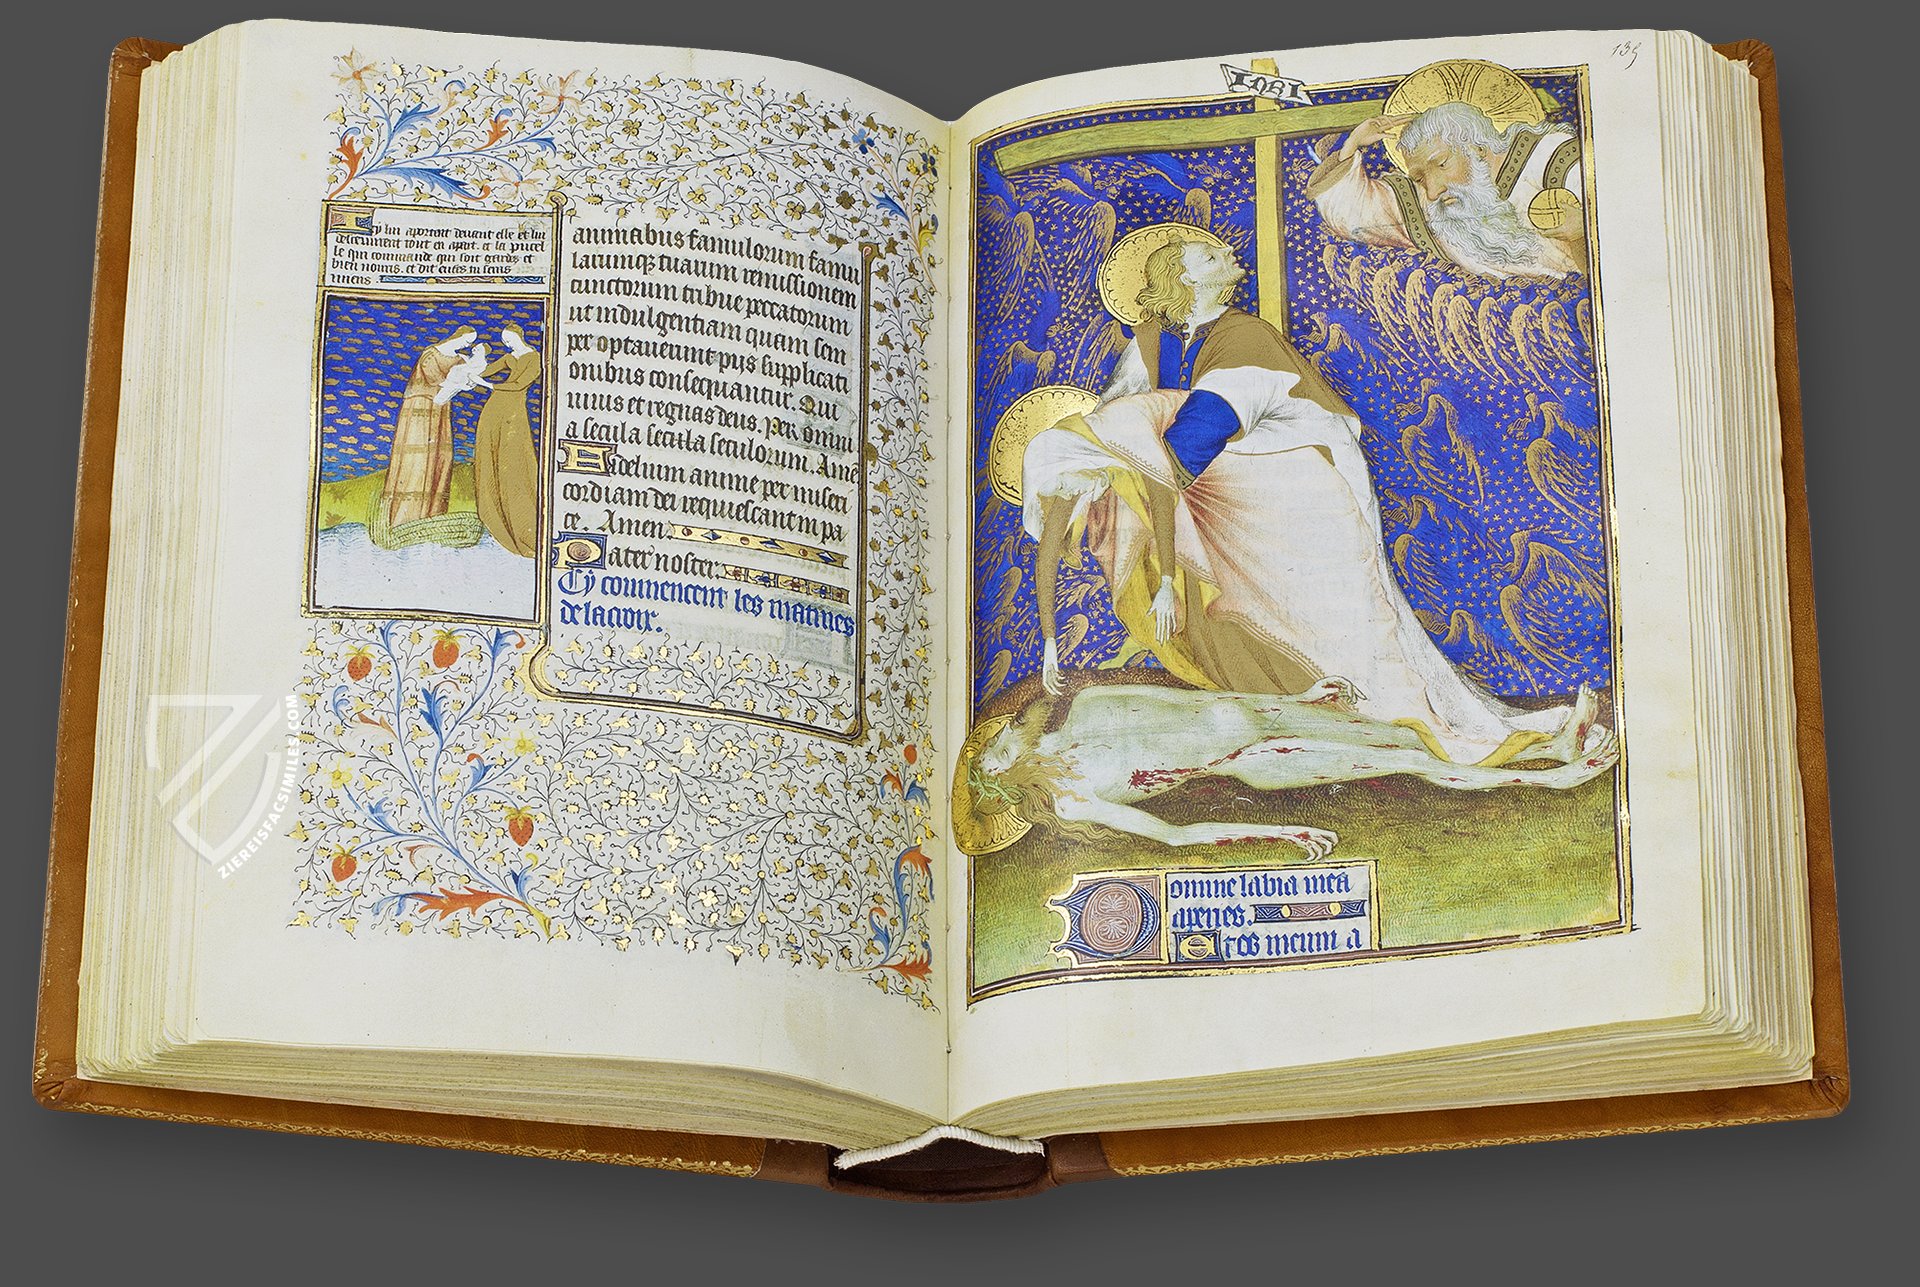 Cy lui aportent deuant elle et lui
desceuurent tout en apert. et la pucel
le qui commande qui soit gardes et
bien nouris. et dit
uiuens
animabus famulorum famu
larumq; tuarum remissionem
cunctorum tribue peccatorum
ut indulgentiam quam sem
per optauerunt pijs supplicati
onibus consequantur. Qui
uiuis et regnas deus. Per omni
a secula secula seculorum. Amē
Fidelium anime per miseri
cordiam dei requiescant in pa
ce. Amen.
Pater noster.
Cy commencent les matines
de la croix.
135
INRI
Domine labia mea
aperies.
Et os meum a
ZIEREISFACSIMILES.COM